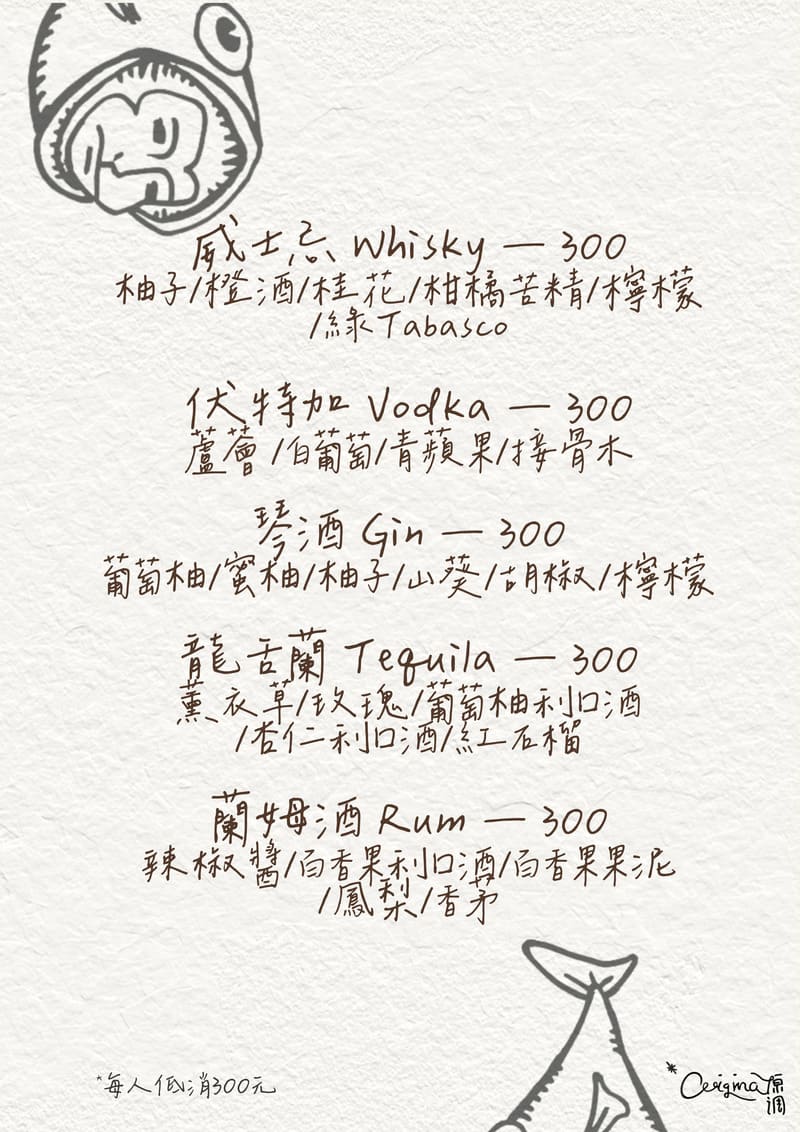 威士忌 Whisky — 300
柚子/橙酒/桂花/柑橘苦精/檸檬
/綠Tabasco
伏特加 Vodka — 300
蘆薈/白葡萄/青蘋果/接骨木
琴酒 Gin — 300
葡萄柚/蜜柚/柚子/山葵/胡椒/檸檬
龍舌蘭 Tequila — 300
薰衣草/玫瑰/葡萄柚利口酒
/杏仁利口酒/紅石榴
蘭姆酒 Rum — 300
辣椒醬/百香果利口酒/百香果果泥
/鳳梨/香茅
*每人低消300元